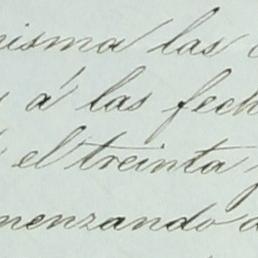 misma las
á las fech
el treinta y
menzando a